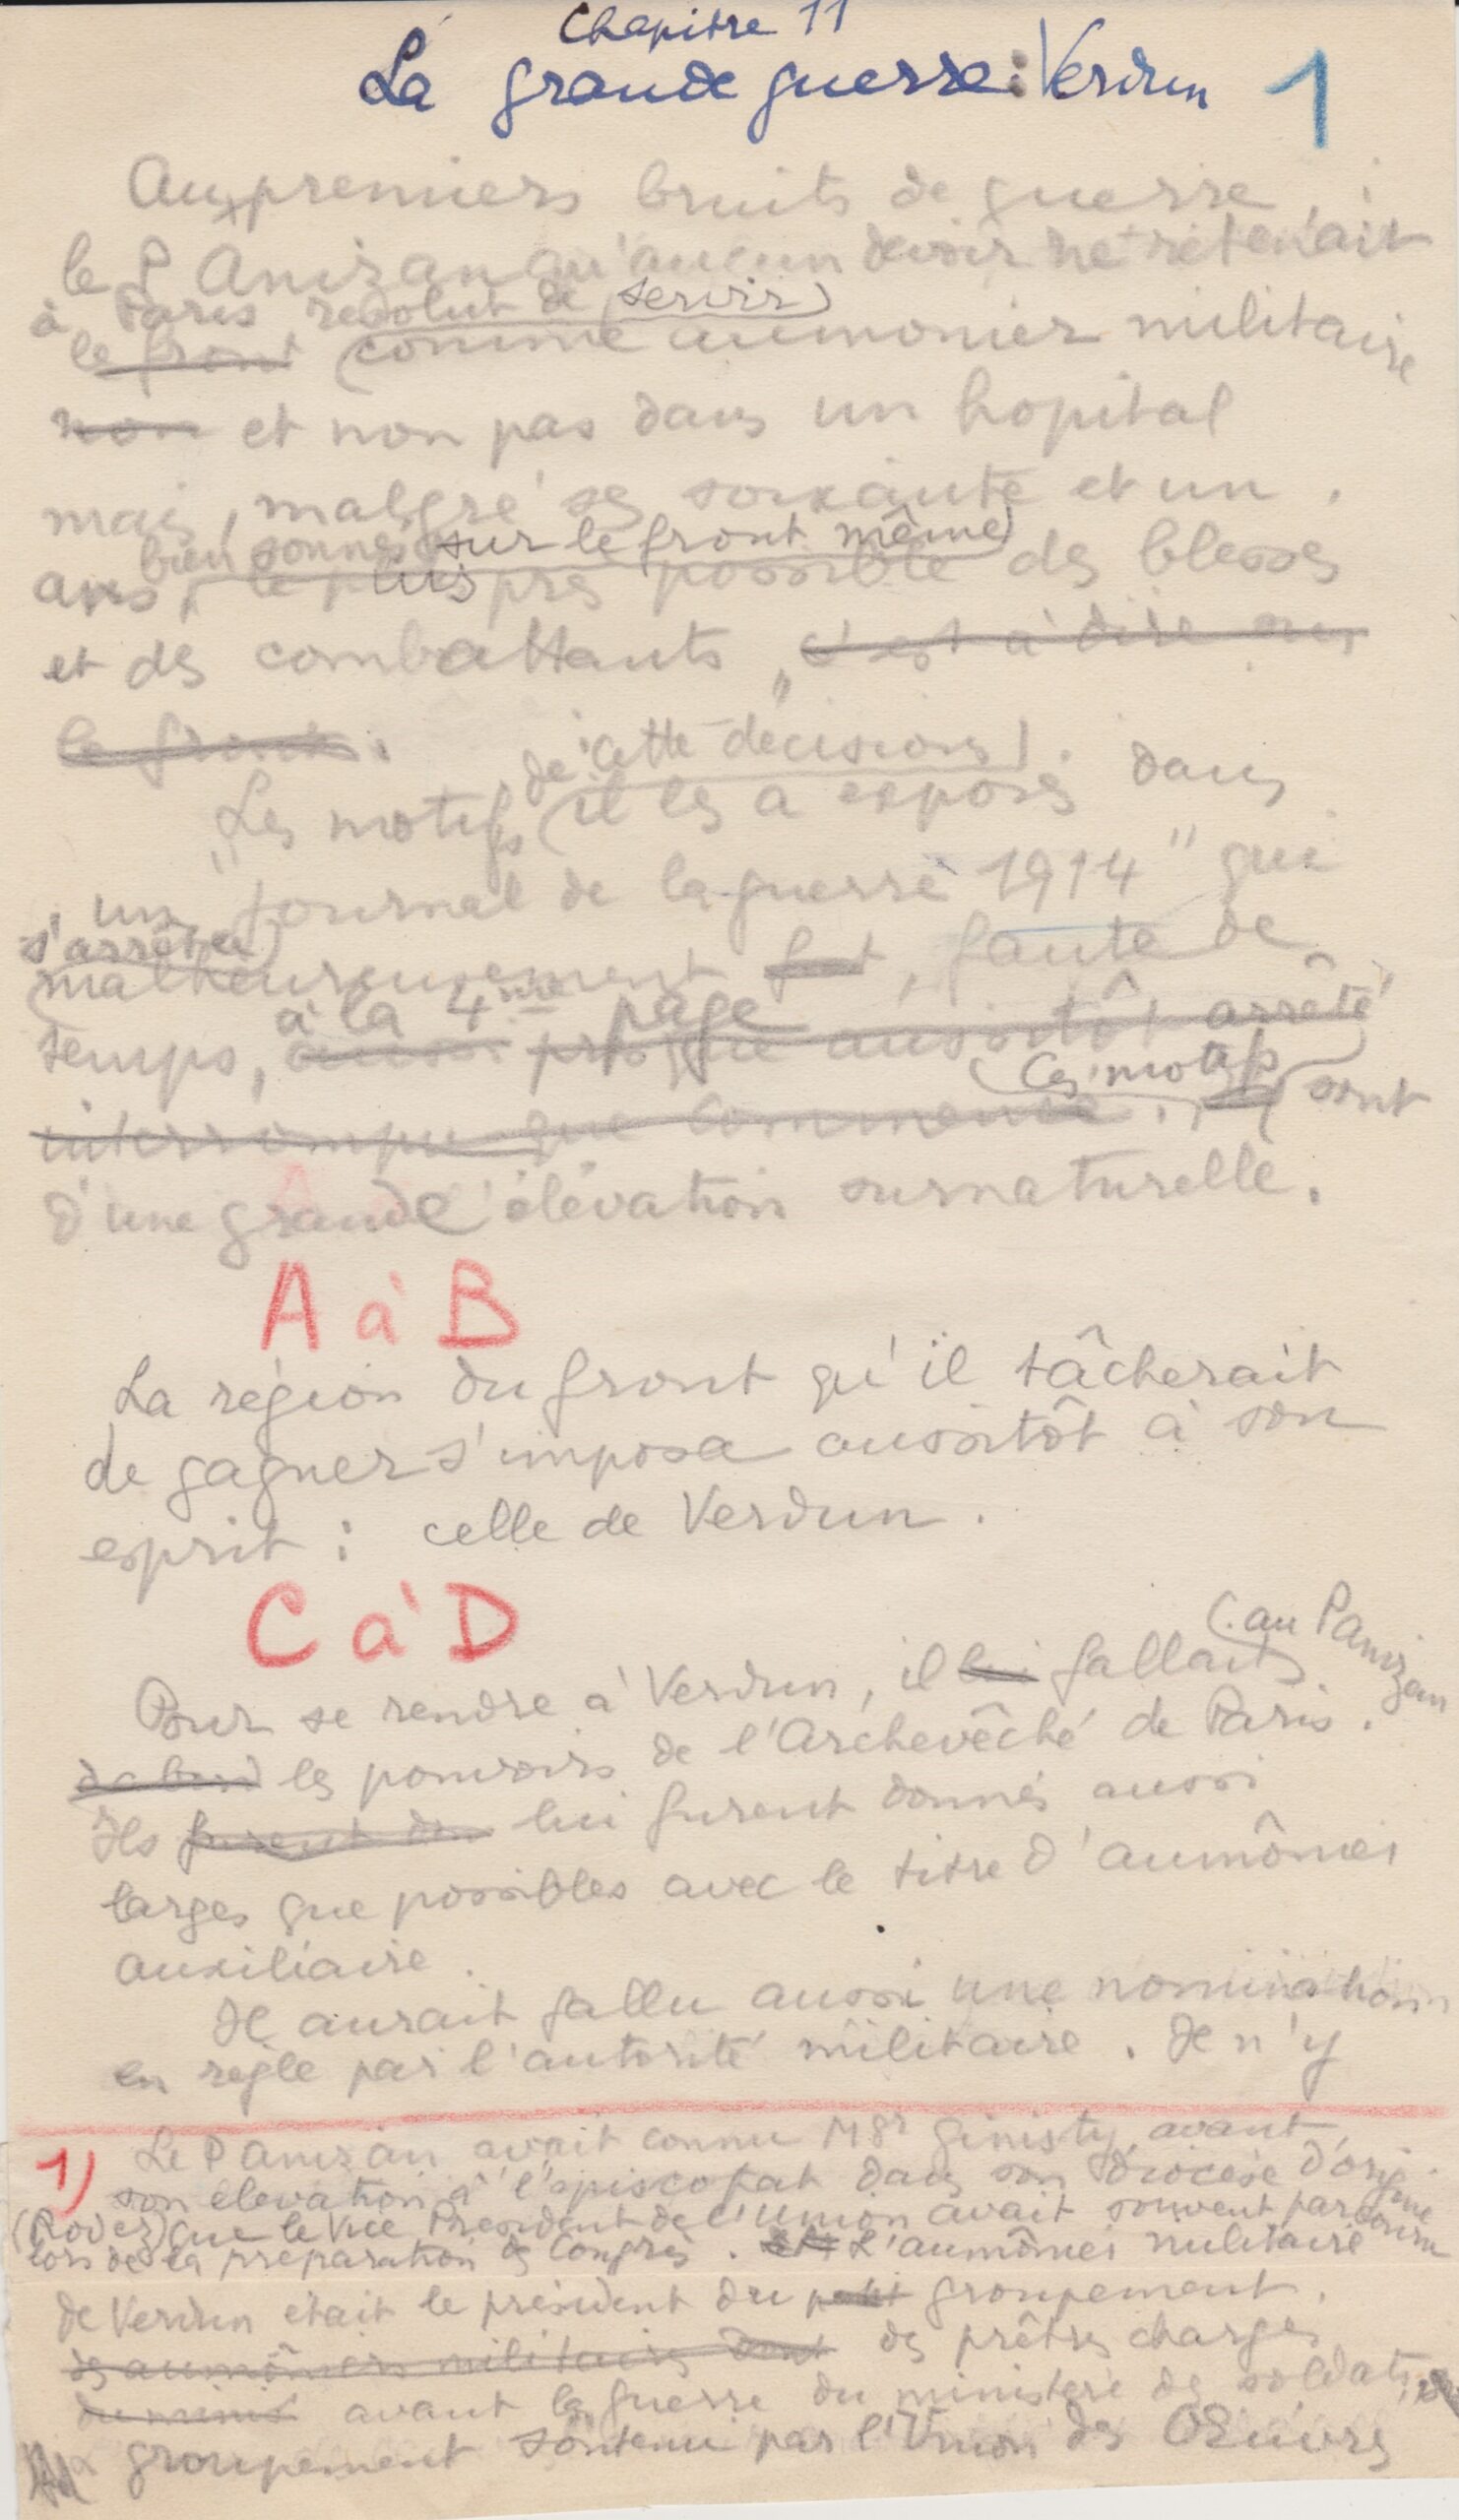 Chapitre 11
La grande guerre : Verdun 1
Aux premiers bruits de guerre,
le P Anizan qu'aucun devoir ne retenait
à Paris résolut de servir
le front comme aumonier militaire
non et non pas dans un hopital
mais, malgré ses soixante et un
bien sonnés sur le front même
ans, le plus près possible des blessés
et des combattants, c'est à dire sur
le front.
de cette décision
Les motifs il les a exposés dans
un "Journal de la guerre 1914" qui
s'arrête
malheureusement fut, faute de
à la 4me page
temps, aussi presque aussitôt arrêté
Ces motifs
interrompu que commencé. sont
d'une grande élévation surnaturelle.
A à B
La région du front qu'il tâcherait
de gagner s'imposa aussitôt à son
esprit : celle de Verdun.
C à D
au P Anizan
Pour se rendre à Verdun, il lui fallait
d'abord les pouvoirs de l'Archevêché de Paris.
Ils furent don lui furent donnés aussi
larges que possibles avec le titre d'aumônier
auxiliaire.
Il aurait fallu aussi une nomination
en règle par l'autorité militaire. Il n'y
1) Le P Anizan avait connu Mgr Ginisty avant
son élévation à l'épiscopat dans son diocèse d'origine
(Rodez) que le Vice Président de l'Union avait souvent parcouru
lors de la préparation des Congrès. L'aumônier militaire
de Verdun était le président du petit groupement
des aumôniers militaires dont des prêtres chargés
du minis avant la guerre du ministère des soldats,
groupement soutenu par l'Union des OEuvres